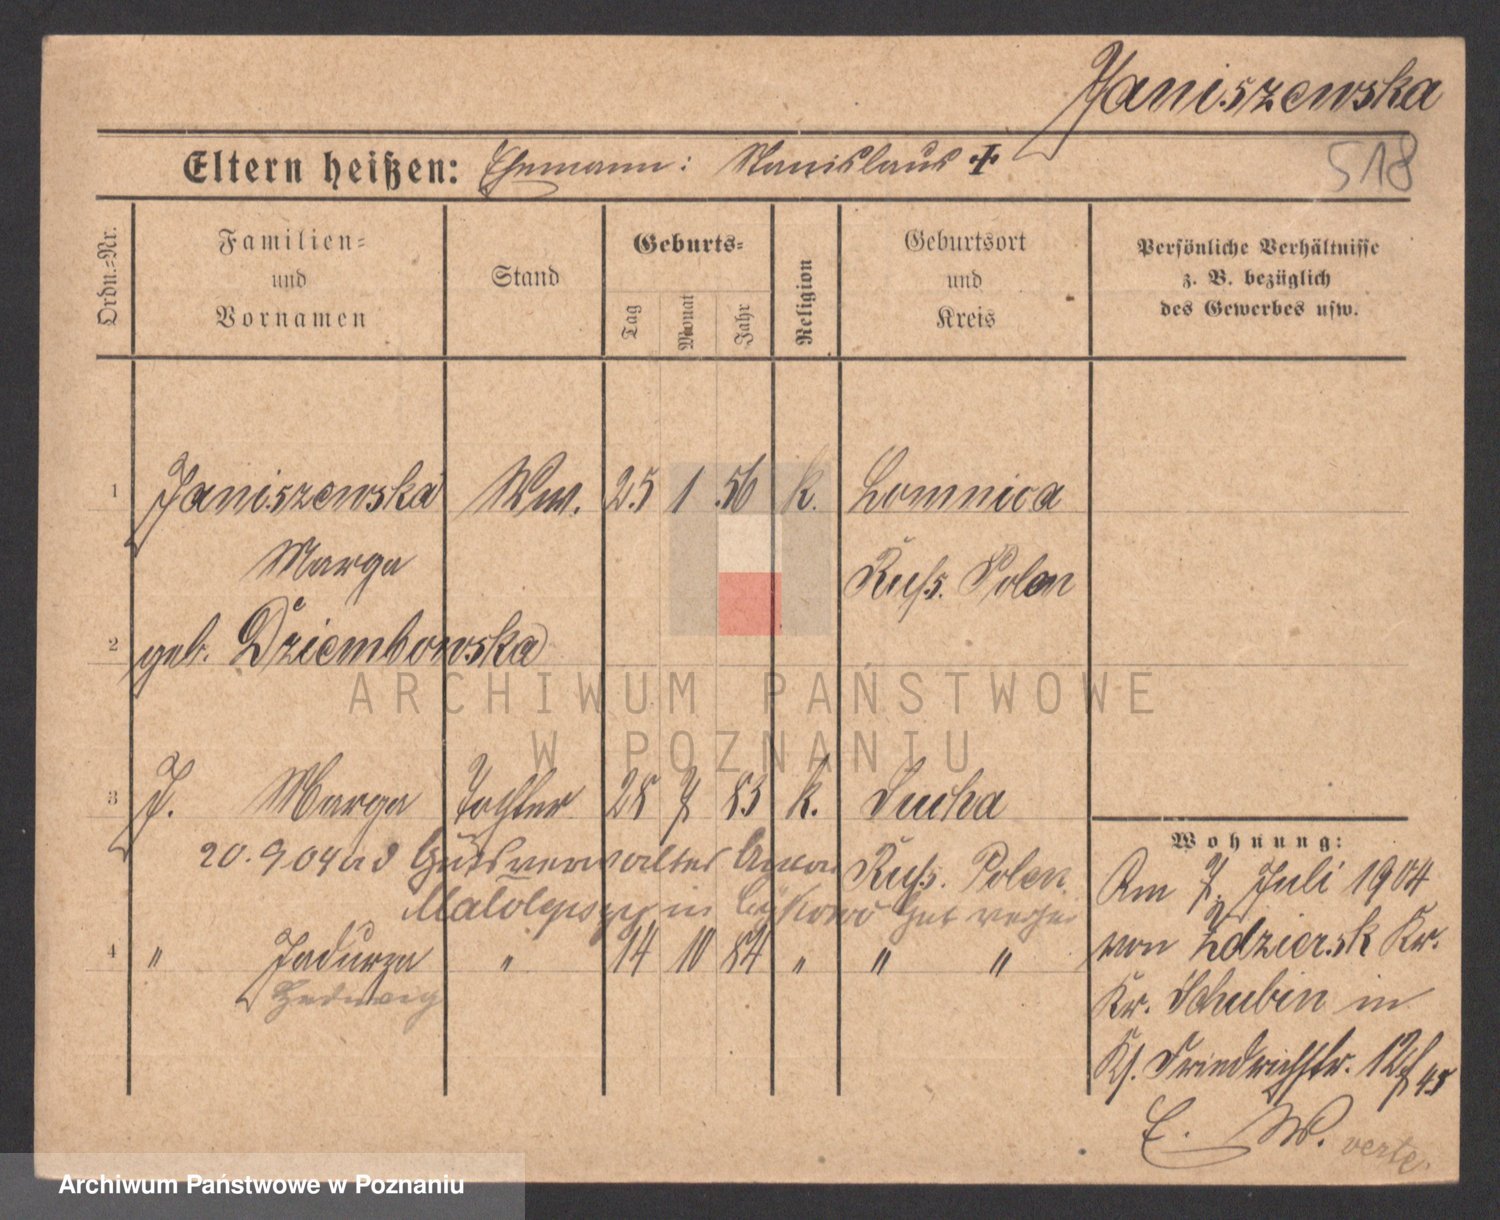 Janiszewska
518
Eltern heißen: Ehemann: Stanislaus ✝
Ordn.-Nr.
Familien-
und
Vornamen
Stand
Geburts-
Tag
Monat
Jahr
Religion
Geburtsort
und
Kreis
Persönliche Verhältnisse
z. B. bezüglich
des Gewerbes usw.
1 Janiszewska Ww. 25 1 56 k. Lomnica
Marga Russ. Polen
2 geb. Dziembowska
ARCHIWUM PAŃSTWOWE
W POZNANIU
3 J. Marga Tochter 28 7 83 k. Sucha
20.9.04 Gutsverwalter Russ. Polen
in Gut
4 " Jadwiga " 14 10 84 " " "
Hedwig
Wohnung:
Am 7. Juli 1904
von Zdziersk Kr.
Kr. Schubin in
Friedrichstr. 12
E. W. verte.
Archiwum Państwowe w Poznaniu